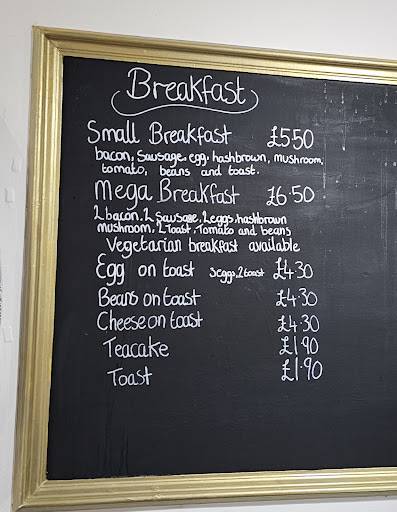 Breakfast
Small Breakfast £5.50
bacon, Sausage, egg, hashbrown, mushroom,
tomato, beans and toast.
Mega Breakfast £6.50
2 bacon, 2 Sausage, 2 eggs, hashbrown
mushroom, 2 Toast, Tomato and beans
Vegetarian breakfast available
Egg on toast 3 eggs, 2 toast £4.30
Beans on toast £4.30
Cheese on toast £4.30
Teacake £1.90
Toast £1.90